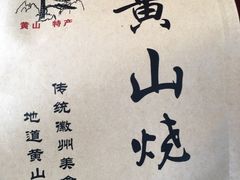 黄山 特产
黄山烧
传统徽州美食
地道黄山